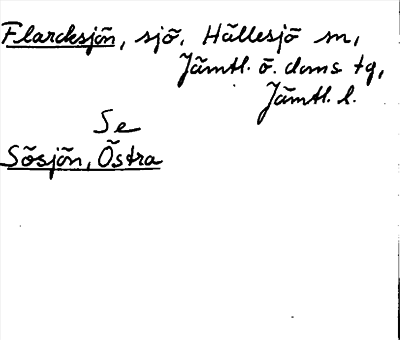 Flarcksjön, sjö, Hällesjö sn,
Jämtl. ö. doms tg,
Jämtl. l.
Se
Sösjön, Östra